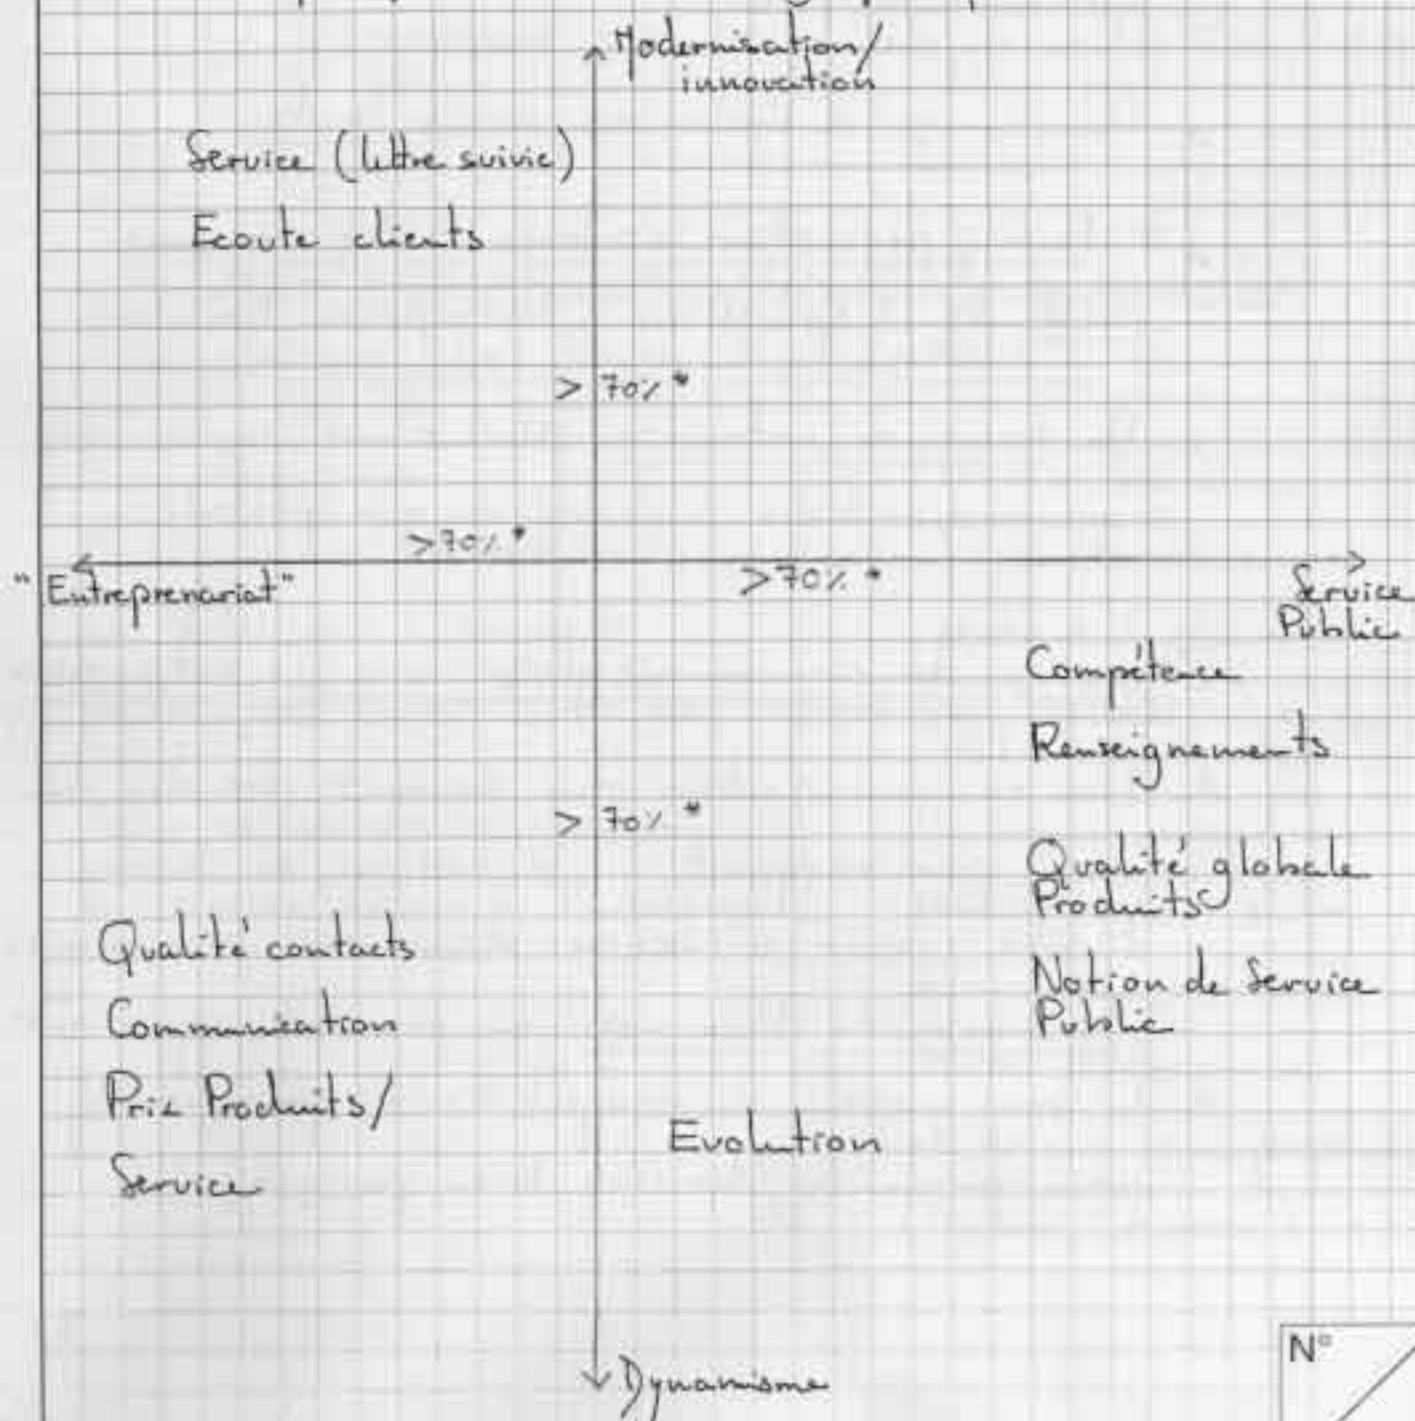 Modernisation/
innovation
Service (lettre suivie)
Ecoute clients
> 70% *
>70% *
"Entreprenariat"
>70% *
Service
Public
Compétence
Renseignements
> 70% *
Qualité globale
Produits
Qualité contacts
Notion de Service
Public
Communication
Prix Produits/
Service
Evolution
Dynamisme
N°